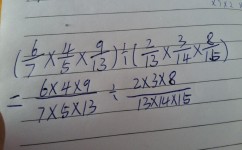 (6/7 × 4/5 × 9/13) ÷ (2/13 × 3/14 × 8/15)
= 6×4×9/7×5×13 ÷ 2×3×8/13×14×15